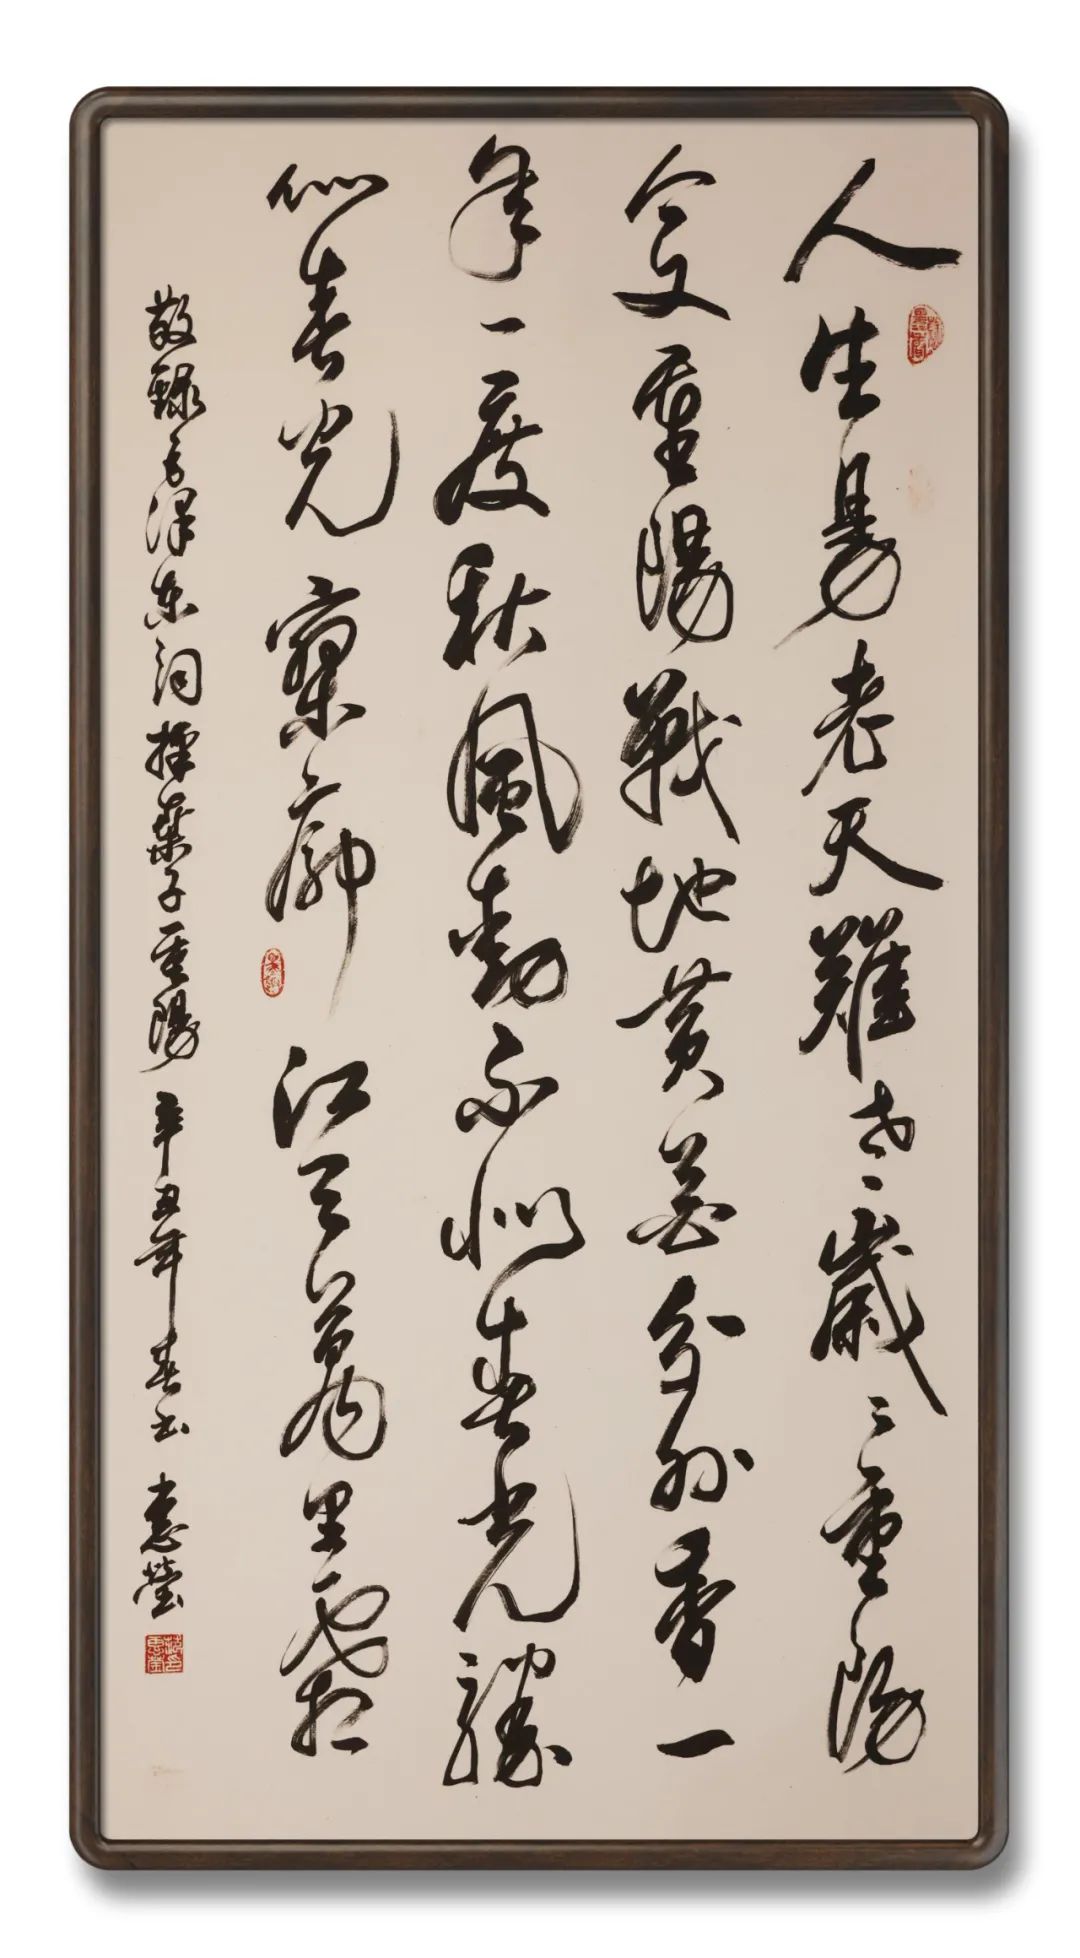 人生易老天難老歲〻重陽
今又重陽戰地黃花分外香一
年一度秋風勁不似春光勝
似春光寥廓江天萬里霜
敬錄毛澤东詞採桑子重陽 辛丑年春书 惠瑩